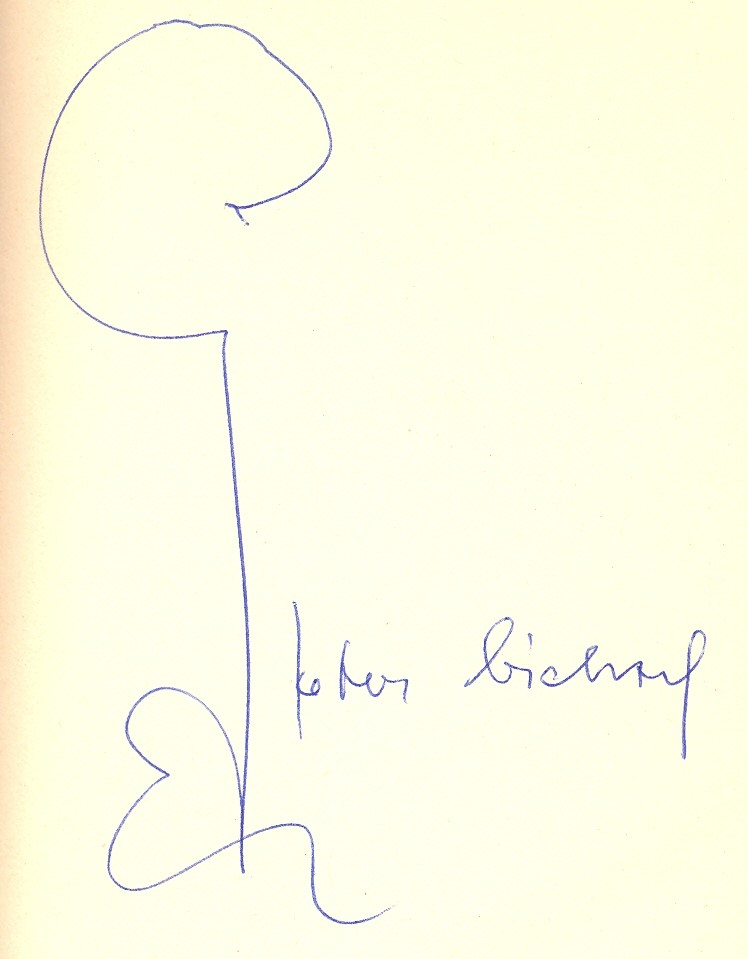 peter bichsel